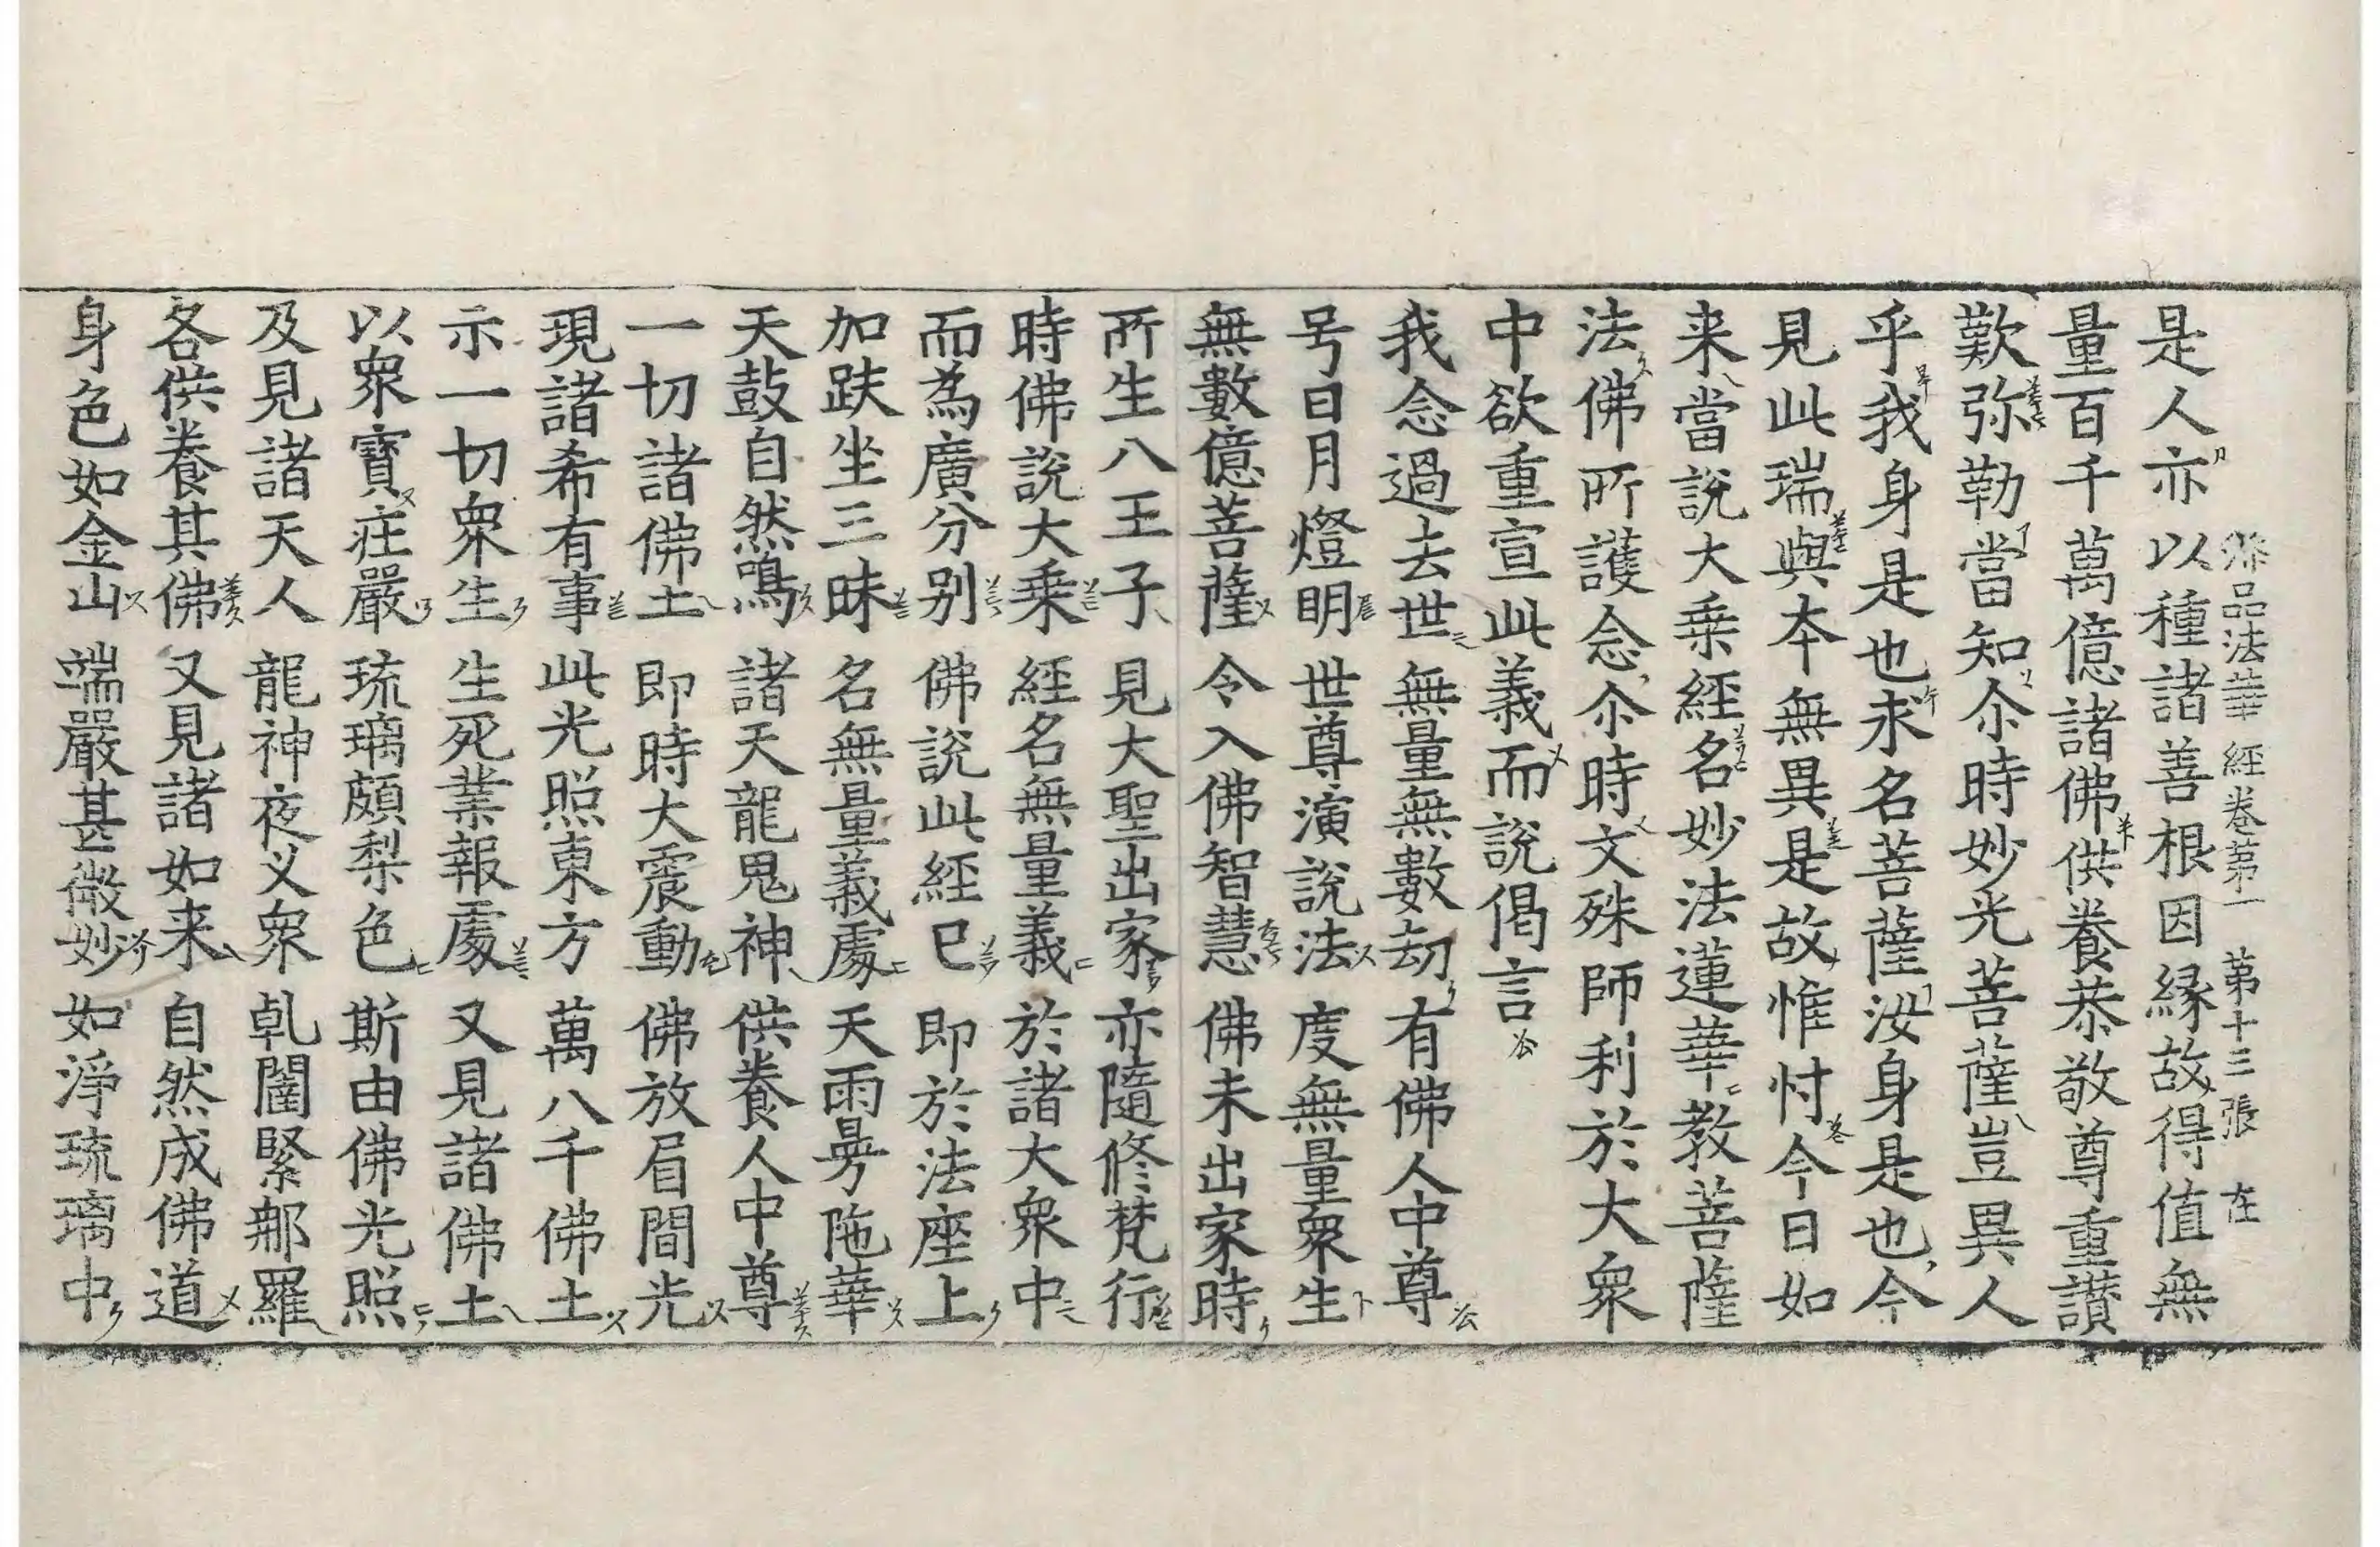 添品法華經卷第一 第十三張 在
是人亦以種諸善根因縁故得值無
量百千萬億諸佛供養恭敬尊重讃
歎弥勒當知尒時妙光菩薩豈異人
乎我身是也求名菩薩汝身是也今
見此瑞與本無異是故惟忖今日如
来當説大乗經名妙法蓮華教菩薩
法佛所護念尒時文殊師利於大衆
中欲重宣此義而説偈言
我念過去世 無量無數劫 有佛人中尊
号日月燈明 世尊演説法 度無量衆生
無數億菩薩 令入佛智慧 佛未出家時
所生八王子 見大聖出家 亦隨修梵行
時佛説大乗 經名無量義 於諸大衆中
而為廣分別 佛説此經已 即於法座上
加趺坐三昧 名無量義處 天雨曼陁華
天鼓自然鳴 諸天龍鬼神 供養人中尊
一切諸佛土 即時大震動 佛放眉間光
現諸希有事 此光照東方 萬八千佛土
示一切衆生 生死業報處 又見諸佛土
以衆寶莊嚴 琉璃頗梨色 斯由佛光照
及見諸天人 龍神夜叉衆 乹闥緊那羅
各供養其佛 又見諸如来 自然成佛道
身色如金山 端嚴甚微妙 如淨琉璃中